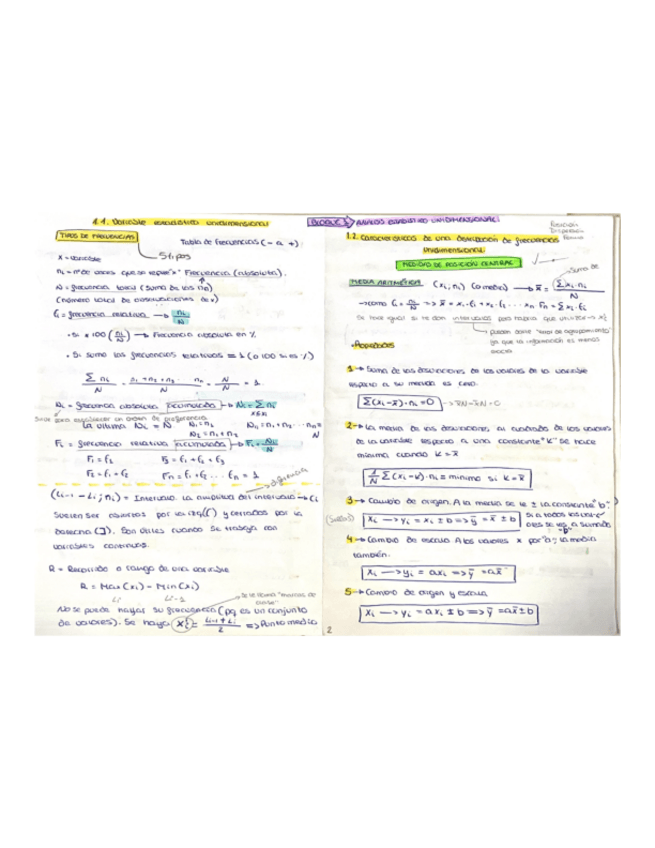 1.1. Variable estadística unidimensional
TIPOS DE FRECUENCIAS
Tabla de frecuencias (- a +)
X = variable
5 tipos
ni = nº de veces que se repite "x" Frecuencia (absoluta).
N = frecuencia total (suma de las ni)
(número total de observaciones de x)
fi = frecuencia relativa → ni/N
• Si x 100 (ni/N) → Frecuencia absoluta en %
• Si sumo las frecuencias relativas = 1 (o 100 si es %)
Σ ni / N = n1 + n2 + n3 ... nn / N = N/N = 1
Ni = frecuencia absoluta acumulada → Ni = Σ ni
Sirve para establecer un orden de preferencia
La última Ni = N
N1 = n1
N2 = n1 + n2
Ni = n1 + n2 ... nn = N
Fi = frecuencia relativa acumulada → Fi = Ni/N
F1 = f1
F3 = f1 + f2 + f3
F2 = f1 + f2
Fn = f1 + f2 ... fn = 1
diferencia
(Li-1 - Li; ni) = Intervalo. La amplitud del intervalo → ci
Suelen ser abiertos por la izq (() y cerrados por la
derecha (]). Son útiles cuando se trabaja con
variables continuas.
R = Recorrido o rango de una variable
R = Max (xi) - Min (xi)
Li
Li-1
Se le llama "marcas de
clase"
No se puede hayar su frecuencia (pq es un conjunto
de valores). Se haya xi = Li-1 + Li / 2 => Punto medio
BLOQUE 1 → ANÁLISIS ESTADÍSTICO UNIDIMENSIONAL
Posición
Dispersión
Forma
1.2. Características de una distribución de frecuencias
unidimensional
MEDIDAS DE POSICIÓN CENTRAL
Suma de
MEDIA ARITMÉTICA (xi, ni) (o media) → x̄ = Σxi·ni / N
→ como fi = ni/N => x̄ = x1·f1 + x2·f2 ... xn·fn = Σxi·fi
Se hace igual si te dan intervalos pero habría que utilizar xi
pueden darse "error de agrupamiento"
ya que la información es menos
precisa
• Propiedades
1 → Suma de las desviaciones de los valores de la variable
respecto a su media es cero.
Σ(xi - x̄)·ni = 0
2 → La media de las desviaciones al cuadrado de los valores
de la variable respecto a una constante "k" se hace
mínima cuando k = x̄
1/N Σ(xi - k)·ni = mínimo si k = x̄
3 → Cambio de origen. A la media se le ± la constante "b";
xi → yi = xi ± b => ȳ = x̄ ± b
si a todos los val.
se les va a sumado
"b"
4 → Cambio de escala. A los valores x por "a"; la media
también.
xi → yi = axi => ȳ = ax̄
5 → Cambio de origen y escala
xi → yi = axi ± b => ȳ = ax̄ ± b
2